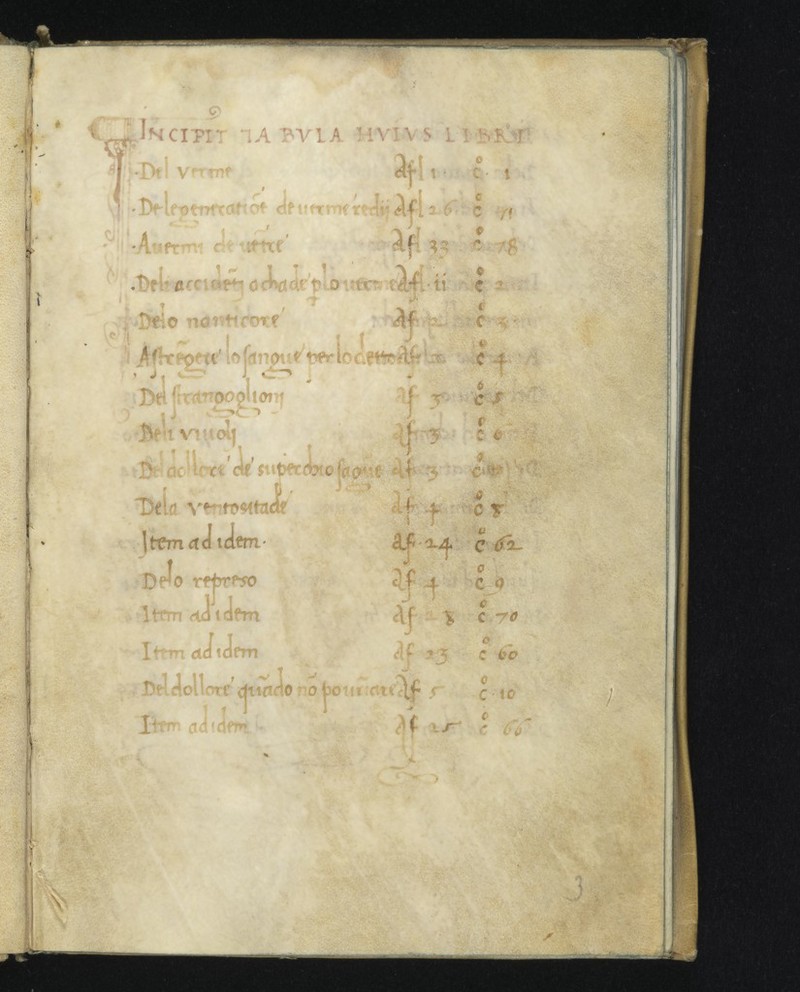 INCIPIT TABULA HUIUS LIBRI
Del verme Afl 1 c° 1
De le generatiõe de verme redij Afl 26 c°
A vermi de vẽtre Afl 33 c° 78
Deli accidẽtj achade p lo verme Afl ii c° 2
Delo nanticore Af 2 c° 3
Astrẽgere lo sangue per lo detto Af c° 4
Del strangoglionj Af 3 c° 5
Deli vivolj Af 3 c° 6
Del dollore de superchio sãgue Af 3 c°
Dela ventositade Af 4 c° 8
Item ad idem Af 24 c° 62
Delo represo Af 4 c° 9
Item ad idem Af 28 c° 70
Item ad idem Af 23 c° 60
Del dollore quãdo nõ po urĩare Af 5 c° 10
Item ad idem Af 25 c° 66
3